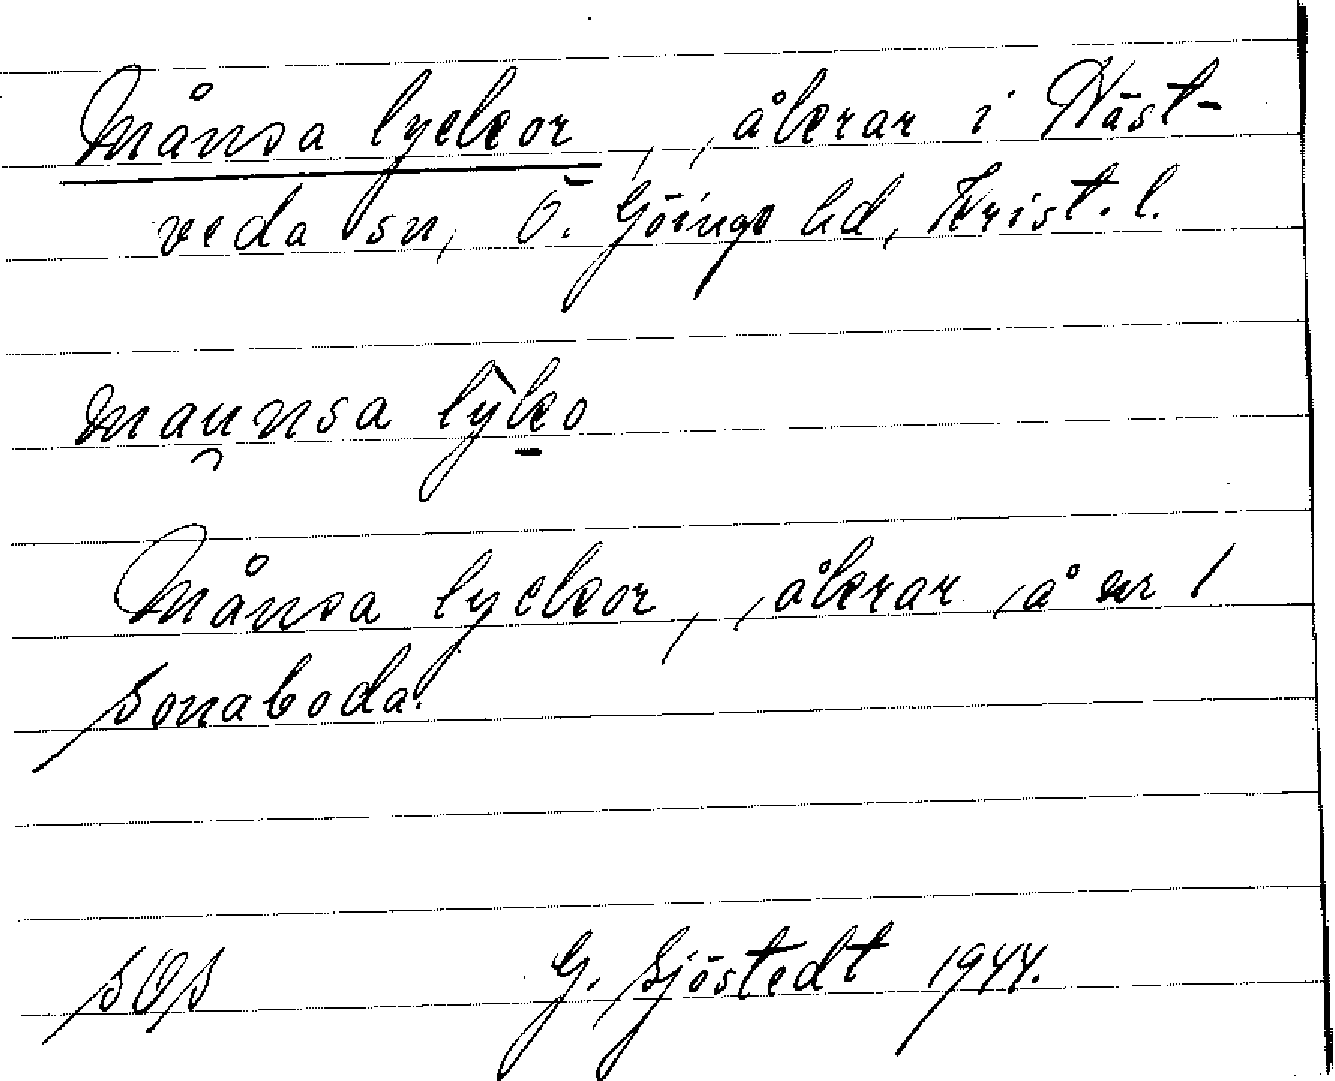 Månsa lyckor, åkrar i Häst-
veda sn, Ö. Göinge hd, Krist. l.
mau̯nsa lỳko
Månsa lyckor, åkrar å nr 1
Sonaboda.
SOS G. Sjöstedt 1944.